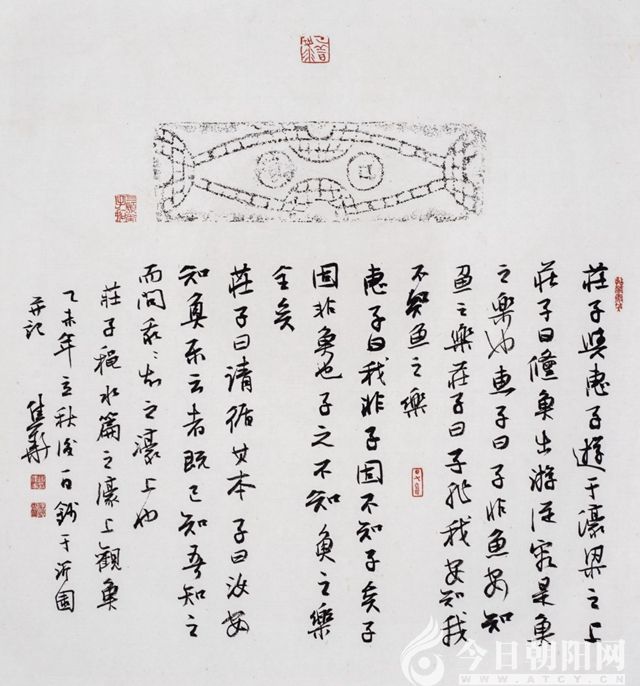 莊子與惠子遊于濠梁之上
莊子曰儵魚出游從容是魚
之樂也惠子曰子非魚安知
魚之樂莊子曰子非我安知我
不知魚之樂
惠子曰我非子固不知子矣子
固非魚也子之不知魚之樂
全矣
莊子曰請循其本 子曰汝安
知魚樂云者既已知吾知之
而問我〻知之濠上也
莊子秋水篇之濠上觀魚
乙未年立秋後一日 于沂園
并記
今日朝阳网
WWW.ATCY.CN